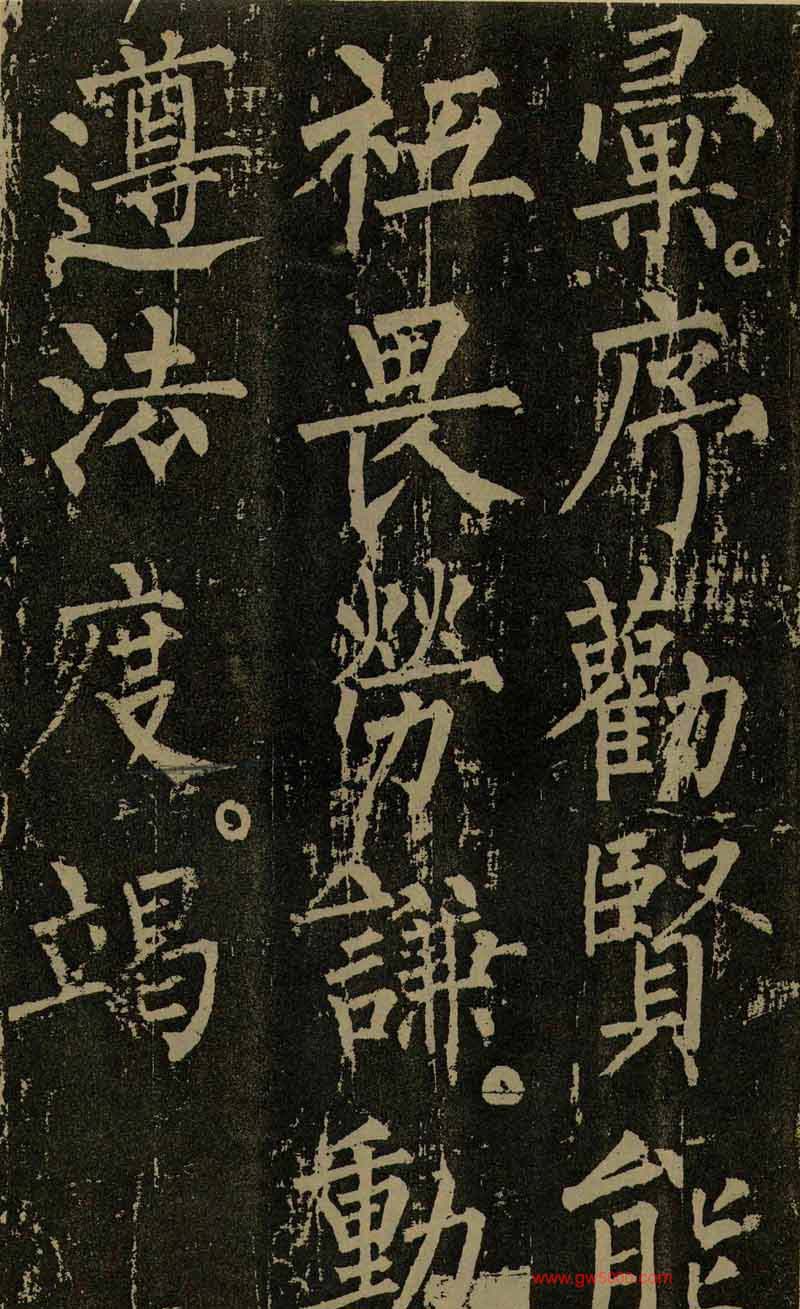 彙。序勸賢能
祗畏勞謙。動
遵法度。竭